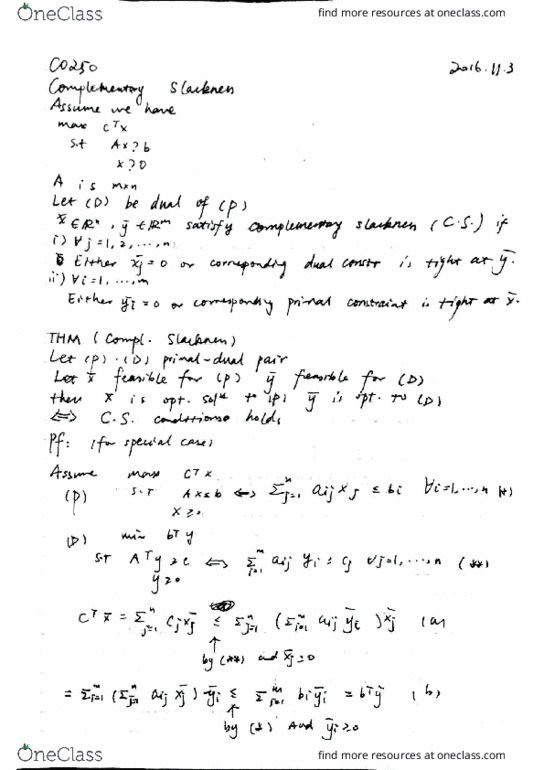 OneClass find more resources at oneclass.com
CO250 2016.11.3
Complementary Slackness
Assume we have
max cᵀx
s.t Ax ? b
x ? 0
A is mxn
Let (D) be dual of (P)
x̄ ∈ ℝⁿ, ȳ ∈ ℝᵐ satisfy complementary slackness (C.S.) if
i) ∀j = 1, 2, ..., n
Either x̄j = 0 or corresponding dual constr is tight at ȳ.
ii) ∀i = 1, ..., m
Either ȳi = 0 or corresponding primal constraint is tight at x̄.
THM (Compl. Slackness)
Let (P), (D) primal-dual pair
Let x̄ feasible for (P) ȳ feasible for (D)
then x̄ is opt. solⁿ to (P) ȳ is opt. to (D)
⇔ C.S. conditions holds
Pf: (for special case)
Assume max cᵀx
(P) s.t Ax ≤ b ⇔ Σⁿj=1 aij xj ≤ bi ∀i=1,...,n (*)
x ≥ 0
(D) min bᵀy
s.t Aᵀy ≥ c ⇔ Σᵐi=1 aij yi ≥ cj ∀j=1,...,n (**)
y ≥ 0
cᵀx̄ = Σⁿj=1 cj x̄j ≤ Σⁿj=1 (Σᵐi=1 aij ȳi) x̄j (a)
↑
by (**) and x̄j ≥ 0
= Σᵐi=1 (Σⁿj=1 aij x̄j) ȳi ≤ Σᵐi=1 bi ȳi = bᵀȳ (b)
↑
by (*) and ȳi ≥ 0
OneClass find more resources at oneclass.com